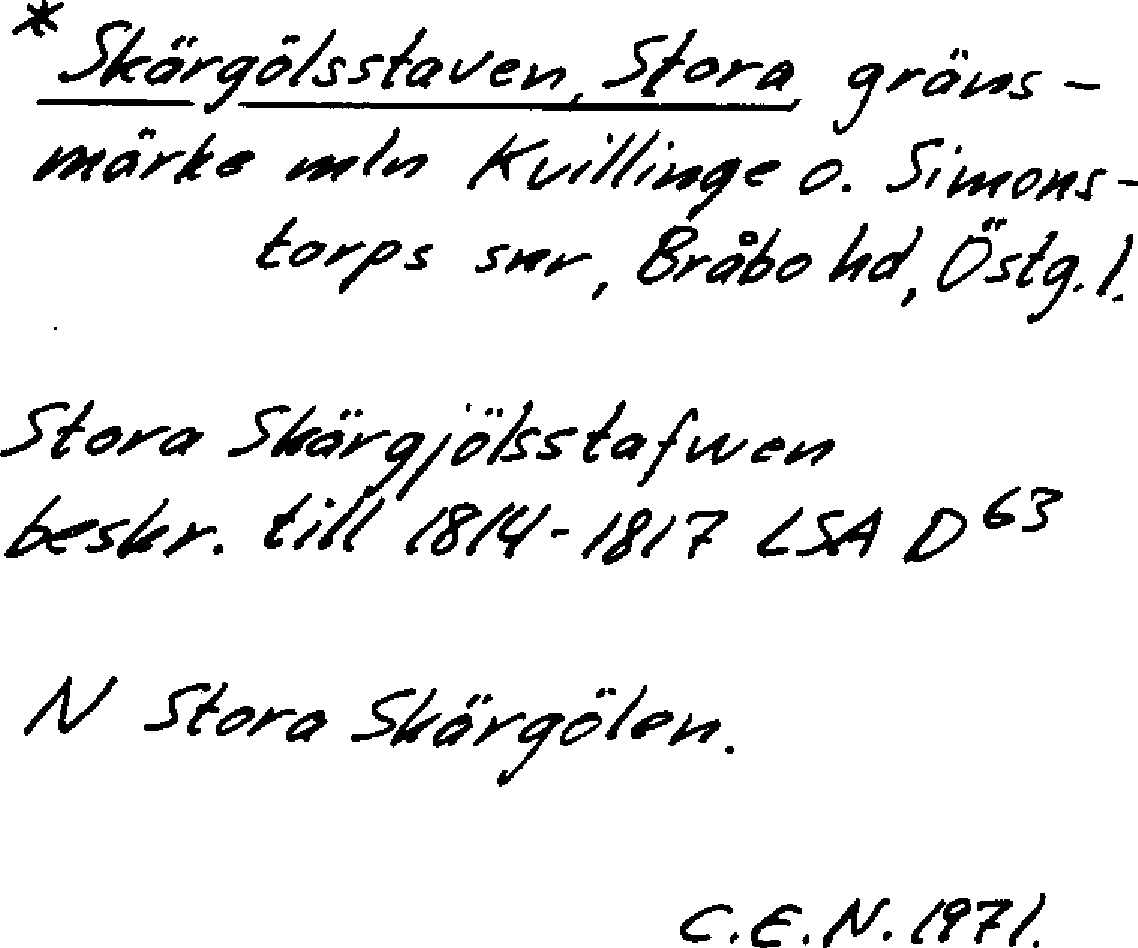 * Skärgölsstaven, Stora gräns-
märke mln Kvillinge o. Simons-
torps snr, Bråbo hd, Östg.l.
Stora Skärgjölsstafwen
beskr. till 1814-1817 LSA D63
N Stora Skärgölen.
C.E.N. 1971.